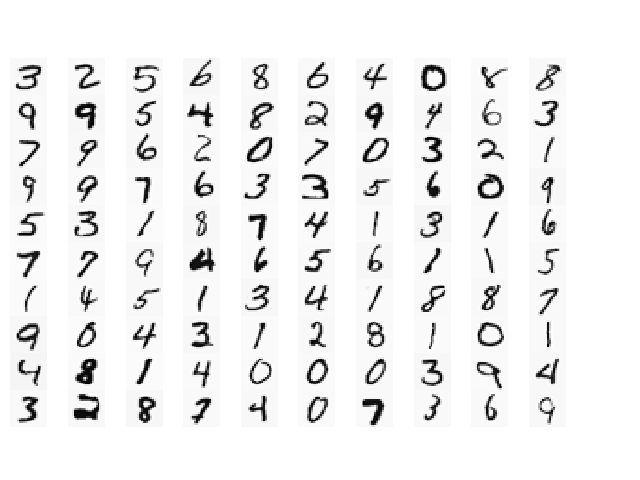 3 2 5 6 8 6 4 0 8 8
9 9 5 4 8 2 9 4 6 3
7 9 6 2 0 7 0 3 2 1
9 9 7 6 3 3 5 6 0 9
5 3 1 8 7 4 1 3 1 6
7 7 9 4 6 5 6 1 1 5
1 4 5 1 3 4 1 8 8 7
9 0 4 3 1 2 8 1 0 1
4 8 1 4 0 0 0 3 9 4
3 2 8 7 4 0 7 3 6 9